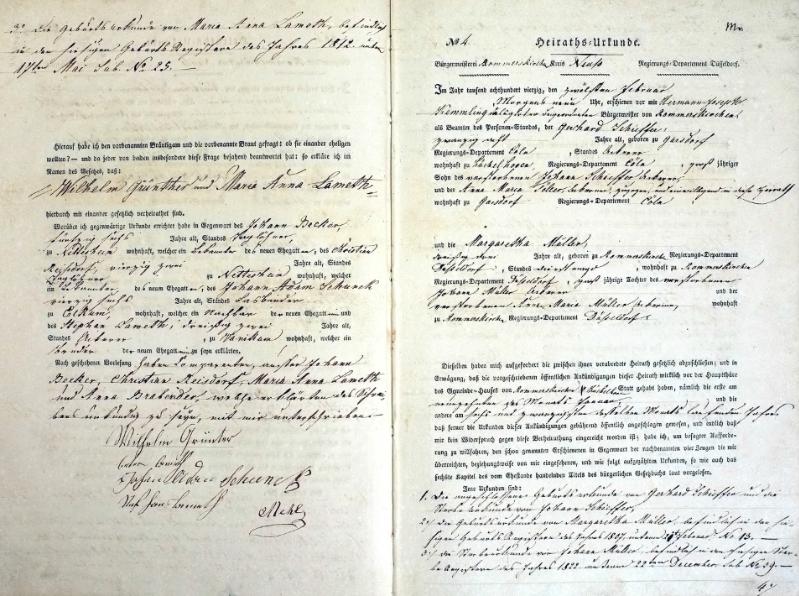 2o Die Geburts Urkunde von Maria Anna Lameth, befindlich
in den hiesigen Geburts Registern des Jahres 1812 unterm
17ten Mai sub No 25. —
Hierauf habe ich den vorbenannten Bräutigam und die vorbenannte Braut gefragt: ob sie einander ehelichen
wollen? — und da jeder von beiden insbesondere diese Frage bejahend beantwortet hat: so erkläre ich im
Namen des Gesetzes, daß:
Wilhelm Grünther und Maria Anna Lameth
hierdurch mit einander gesetzlich verheirathet sind.
Worüber ich gegenwärtige Urkunde errichtet habe in Gegenwart des Johann Becker,
fünfzig sechs Jahre alt, Standes Taglöhner,
zu Nettesheim wohnhaft, welcher ein Bekannter des neuen Ehegatten, des Christian
Reisdorf, vierzig zwei Jahre alt, Standes
Taglöhner zu Nettesheim wohnhaft, welcher
ein Bekannter des neuen Ehegatten, des Johann Adam Schunck
vierzig sechs Jahre alt, Standes
zu wohnhaft, welcher ein Nachbar der neuen Ehegattin und
des Stephan Lameth, dreißig zwei Jahre alt,
Standes Ackerer zu wohnhaft, welcher ein
Bruder der neuen Ehegattin zu seyn erklärten.
Nach geschehener Vorlesung haben Comparenten, außer Johann
Becker, Christian Reisdorf, Maria Anna Lameth
und Anna Brabender, welche erklärten des Schrei-
bens unkundig zu seyn, mit mir unterschrieben.
Wilhelm Grünter
Johan Adam Schunck
No 4. Heiraths-Urkunde.
Bürgermeisterei Rommerskirchen Kreis Neuss Regierungs-Departement Düsseldorf.
Im Jahr tausend achthundert vierzig, den zwölften Februar
Morgens neun Uhr, erschienen vor mir Hermann Joseph
Bürgermeister von Rommerskirchen
als Beamten des Personen-Standes, der Gerhard Schieffer
zwanzig acht Jahre alt, geboren zu Geisdorf
Regierungs-Departement Cöln, Standes Ackerer
wohnhaft zu Regierungs-Departement Cöln, groß jähriger
Sohn des verstorbenen Johann Schieffer Ackerer
und der Anna Maria zugegen, und einwilligend in diese Heirath
wohnhaft zu Geisdorf Regierungs-Departement Cöln
und die Margaretha Müller,
dreißig drei Jahre alt, geboren zu Rommerskirchen Regierungs-Departement
Düsseldorf, Standes Dienstmagd, wohnhaft zu Rommerskirchen
Regierungs-Departement Düsseldorf, groß jährige Tochter des verstorbenen
Johann Müller Ackerer und der
verstorbenen Maria Müller Ackerin, wohnhaft
zu Rommerskirchen Regierungs-Departement Düsseldorf.
Dieselben haben mich aufgefordert die zwischen ihnen verabredete Heirath gesetzlich abzuschließen; und in
Erwägung, daß die vorgeschriebenen öffentlichen Ankündigungen dieser Heirath wirklich vor der Hauptthüre
des Gemeinde-Hauses von Rommerskirchen Statt gehabt haben, nämlich die erste am
neunzehnten des Monats Januar, und die
andere am sechs und zwanzigsten desselben Monats laufenden Jahres
daß ferner die Urkunden dieser Ankündigungen gebührend öffentlich angeschlagen gewesen, und endlich daß
mir kein Widerspruch gegen diese Verheirathung eingereicht worden ist; habe ich, um besagter Aufforde-
rung zu willfahren, den schon genannten Erschienenen in Gegenwart der nachbenannten vier Zeugen die mir
überreichten, beziehungsweise von mir eingesehenen, und wie folgt aufgezählten Urkunden, so wie auch das
sechste Kapitel des vom Ehestande handelnden Titels des bürgerlichen Gesetzbuchs laut vorgelesen.
Jene Urkunden sind:
1. Die angeschlossene Geburts Urkunde von Gerhard Schieffer und die
Sterbe Urkunde von Johann Schieffer,
2o die Geburts Urkunde von Margaretha Müller, befindlich in den hie-
sigen Geburts Registern des Jahres 1807 Februar No 13. —
3o die Sterbe Urkunde von Johann Müller, befindlich in den hiesigen Ster-
be Registern des Jahres 1822 unterm 22ten December sub No 39. —